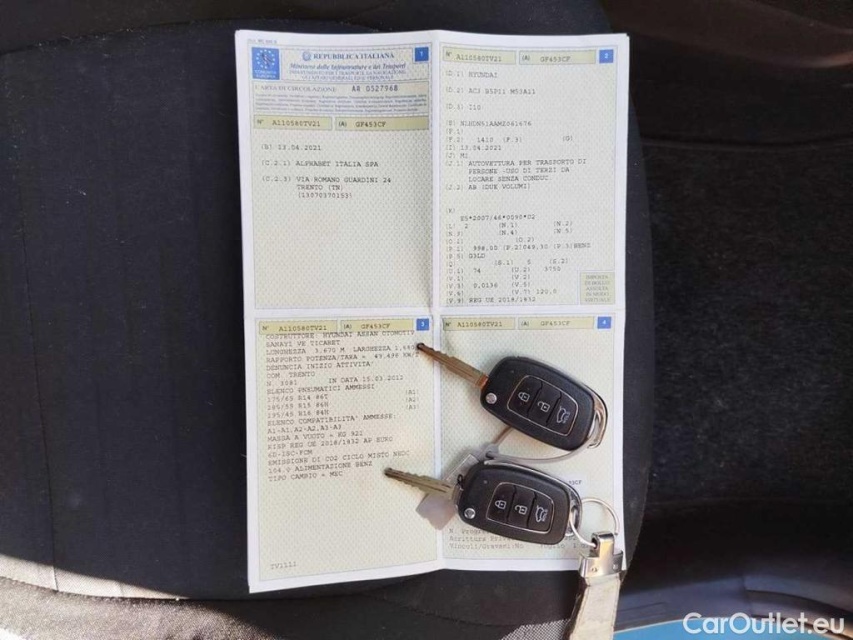 REPUBBLICA ITALIANA
1
Ministero delle Infrastrutture e dei Trasporti
CARTA DI CIRCOLAZIONE AR 0527968
N° A110580TV21 (A) GF453CF
(B) 13.04.2021
(C.2.1) ALPHABET ITALIA SPA
(C.2.3) VIA ROMANO GUARDINI 24
TRENTO (TN)
(13070370153)
N° A110580TV21 (A) GF453CF 2
(D.1) HYUNDAI
(D.2) AC3 B5P11 M53A11
(D.3) I10
(E) NLHDN51AAMZ061676
(F.1)
(F.2) 1410 (F.3) (G)
(I) 13.04.2021
(J) M1
(J.1) AUTOVETTURA PER TRASPORTO DI
PERSONE -USO DI TERZI DA
LOCARE SENZA CONDUC
(J.2) AB (DUE VOLUMI)
(K)
E5*2007/46*0090*02
(L) 2 (N.1) (N.2)
(N.3) (N.4) (N.5)
(O.1) (O.2)
(P.1) 998,00 (P.2)049,30 (P.3)BENZ
(P.5) G3LD
(Q) (S.1) 5 (S.2)
(U.1) 74 (U.2) 3750
(V.1) (V.2)
(V.3) 0,0136 (V.5)
(V.6) (V.7) 120,0
(V.9) REG UE 2018/1832
N° A110580TV21 (A) GF453CF 3
COSTRUTTORE HYUNDAI ASSAN OTOMOTIV
SANAYI VE TICARET
LUNGHEZZA 3,670 M LARGHEZZA
RAPPORTO POTENZA/TARA = 49,438 KW/
DENUNCIA INIZIO ATTIVITA'
COM. TRENTO
N. 3081 IN DATA 15.03.2012
ELENCO PNEUMATICI AMMESSI
175/65 R14 86T (A1)
185/55 R15 86H (A2)
195/45 R16 84H (A3)
ELENCO COMPATIBILITA' AMMESSE:
A1-A1,A2-A2,A3-A3
MASSA A VUOTO = KG 921
RISP REG UE 2018/1832 AP EURO
6D-ISC-FCM
EMISSIONE DI CO2 CICLO MISTO NEDC
104.0 ALIMENTAZIONE BENZ
TIPO CAMBIO = MEC
TV1111
N° A110580TV21 (A) GF453CF 4
Vincoli/Gravami:NO
CarOutlet.eu